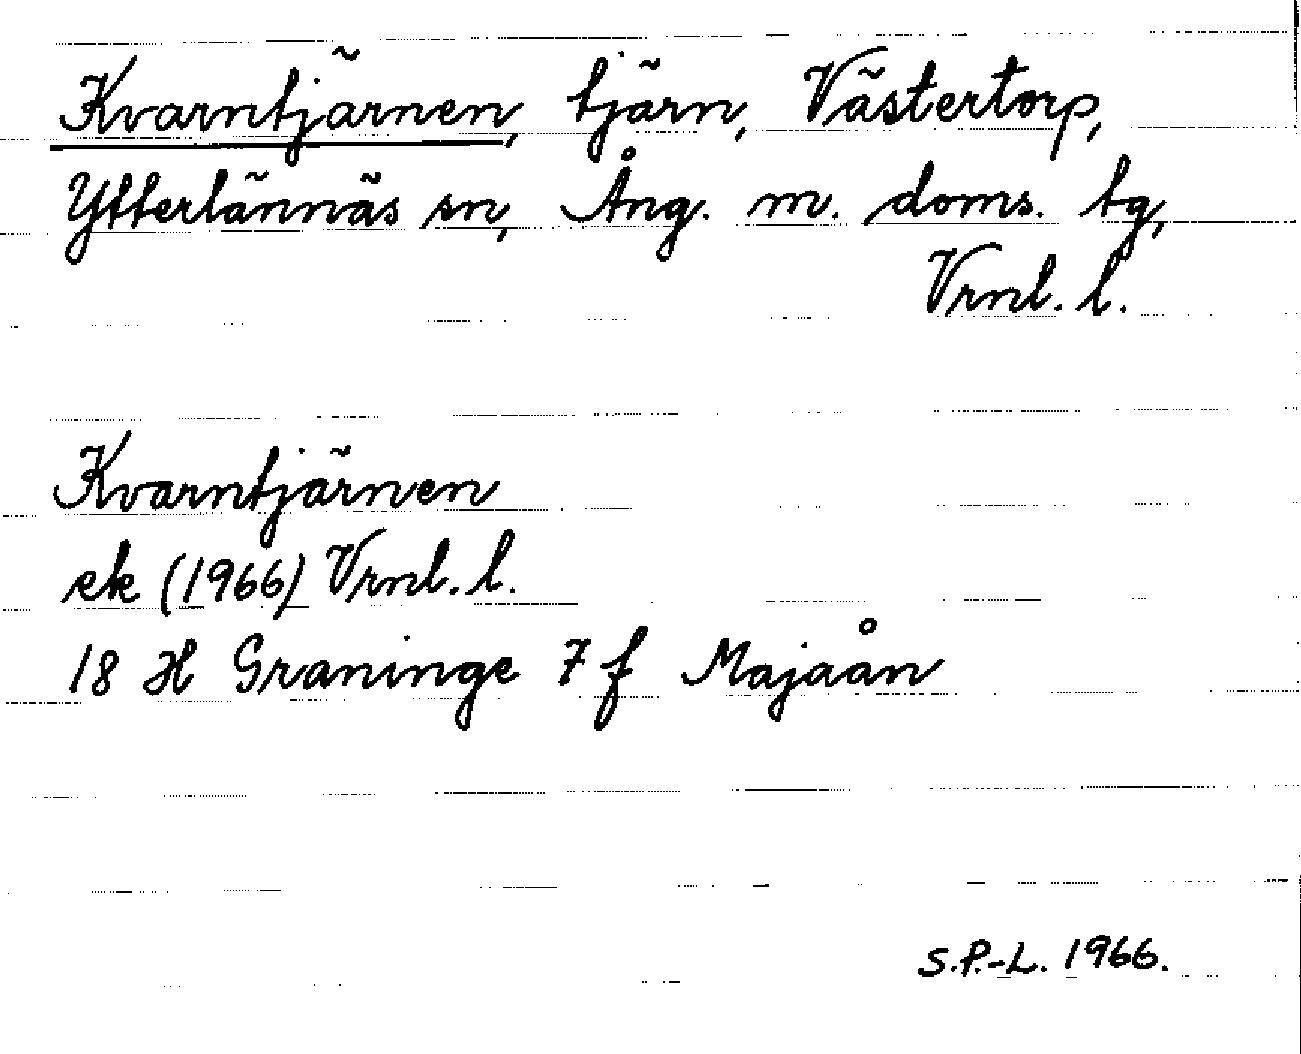 Kvarntjärnen, tjärn, Västertorp,
Ytterlännäs sn, Ång. m. doms. tg,
Vrnl. l.
Kvarntjärnen
ek (1966) Vrnl. l.
18 H Graninge 7 f Majaån
S.P.-L. 1966.